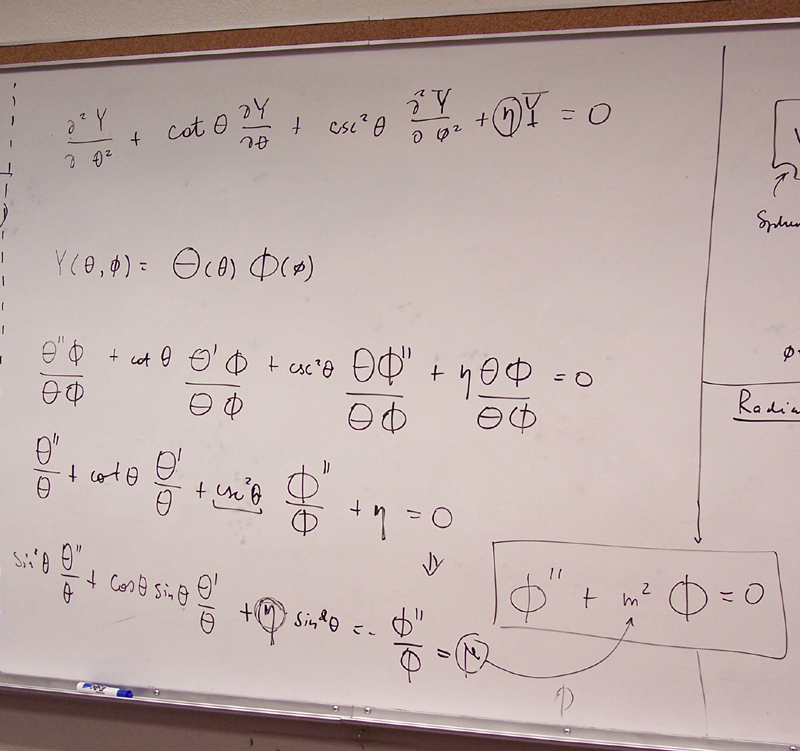 ∂²Y/∂θ² + cot θ ∂Y/∂θ + csc²θ ∂²Y/∂φ² + ηY = 0
Y(θ,φ) = Θ(θ) Φ(φ)
Θ''Φ/ΘΦ + cot θ Θ'Φ/ΘΦ + csc²θ ΘΦ''/ΘΦ + η ΘΦ/ΘΦ = 0
Θ''/Θ + cot θ Θ'/Θ + csc²θ Φ''/Φ + η = 0
⇓
sin²θ Θ''/Θ + cosθ sinθ Θ'/Θ + η sin²θ = - Φ''/Φ =
Φ'' + m² Φ = 0